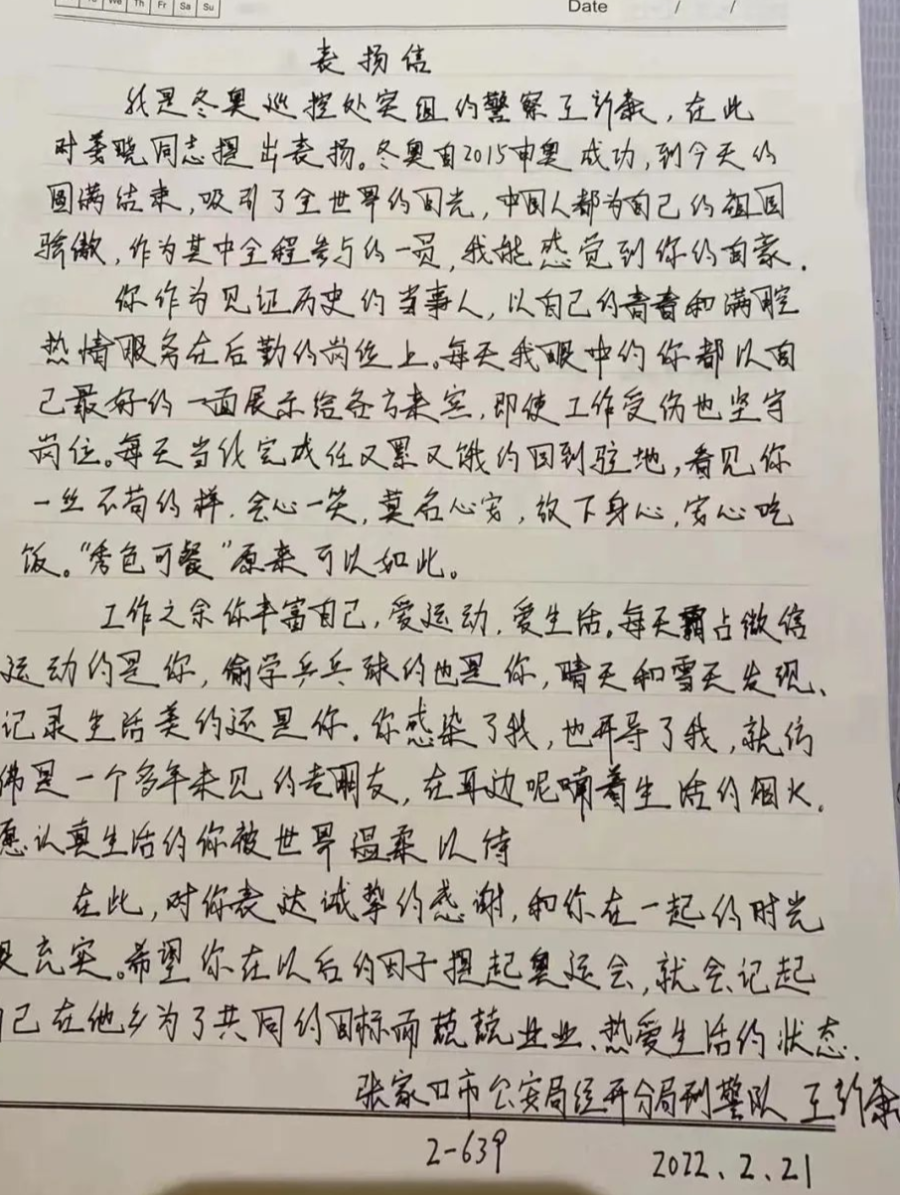 We Th Fr Sa Su
Date / /
表扬信
我是冬奥巡控处突组的警察王新康，在此
对姜晓同志提出表扬。冬奥自2015申奥成功，到今天的
圆满结束，吸引了全世界的目光，中国人都为自己的祖国
骄傲，作为其中全程参与的一员，我能感觉到你的自豪．
你作为见证历史的当事人，以自己的青春和满腔
热情服务在后勤的岗位上。每天我眼中的你都以自
己最好的一面展示给各方来宾，即使工作受伤也坚守
岗位。每天当我完成任又累又饿的回到驻地，看见你
一丝不苟的样．会心一笑，莫名心安，放下身心，安心吃
饭。“秀色可餐”原来可以如此。
工作之余你丰富自己，爱运动．爱生活。每天霸占微信
运动的是你，偷学乒乓球的也是你，晴天和雪天发现、
记录生活美的还是你．你感染了我，也开导了我，就仿
佛是一个多年未见的老朋友，在耳边呢喃着生活的烟火．
愿认真生活的你被世界温柔以待
在此，对你表达诚挚的感谢，和你在一起的时光
充实。希望你在以后的日子提起奥运会，就会记起
自己在他乡为了共同的目标而兢兢业业、热爱生活的状态．
张家口市公安局经开分局刑警队 王新康
2-639
2022.2.21